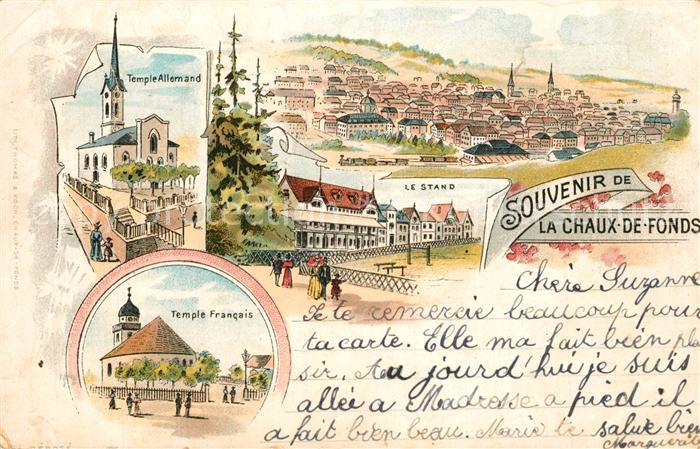 Temple Allemand
LE STAND
SOUVENIR DE
LA CHAUX-DE-FONDS
Temple Français
Chère Suzanne
Je te remercie beaucoup pour
ta carte. Elle ma fait bien pla
sir. Au jourd'hui je suis
allée a Madresse a pied il
a fait bien beau. Marie te salue bien
Marguerite